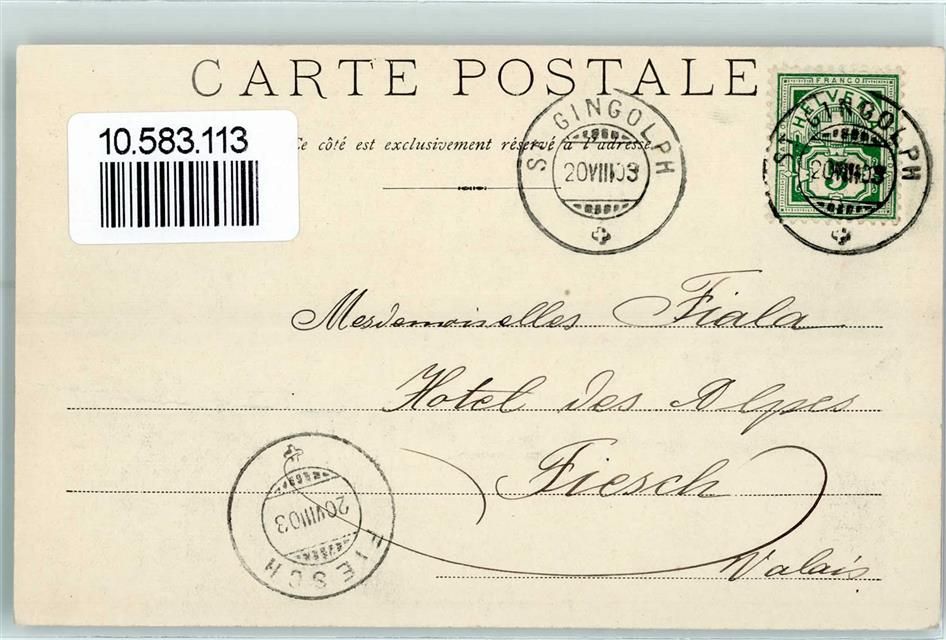 CARTE POSTALE
10.583.113
Ce côté est exclusivement réservé à l'adresse.
ST GINGOLPH
20VIII03
FRANCO
HELVETIA
5
ST GINGOLPH
20VIII03
Mesdemoiselles Fiala
Hotel des Alpes
Fiesch
Valais
FIESCH
20VIII03